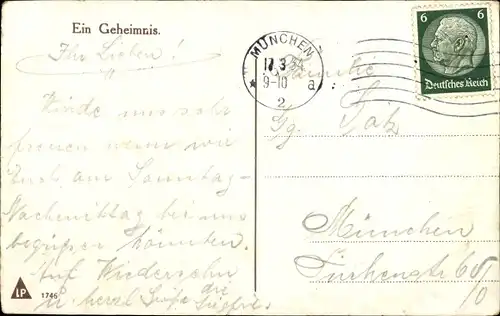 Ein Geheimnis.
Ihr Lieben!
Würde uns sehr
freuen wenn wir
Euch am Sonntag-
Nachmittag bei uns
begrüßen könnten.
Auf Wiedersehn
u. herzl. Grüße die
LP 1746
MÜNCHEN
17.3.34
9-10 a
2
6 6
Deutsches Reich
Familie
Gg. Götz
München